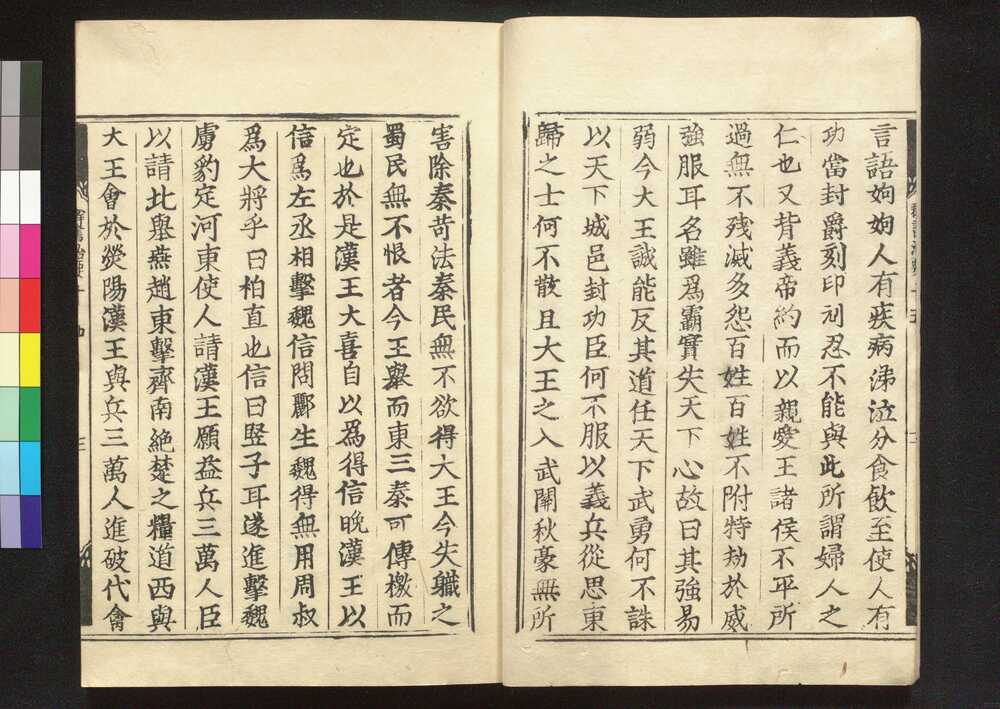 言語姁姁人有疾病涕泣分食飲至使人有
功當封爵刻印刓忍不能與此所謂婦人之
仁也又背義帝約而以親愛王諸侯不平所
過無不殘滅多怨百姓百姓不附特劫於威
強服耳名雖爲霸實失天下心故曰其強易
弱今大王誠能反其道任天下武勇何不誅
以天下城邑封功臣何不服以義兵從思東
歸之士何不散且大王之入武關秋豪無所
害除秦苛法秦民無不欲得大王今失職之
蜀民無不恨者今王舉而東三秦可傳檄而
定也於是漢王大喜自以為得信晚漢王以
信爲左丞相擊魏信問酈生魏得無用周叔
爲大將乎曰柏直也信曰豎子耳遂進擊魏
虜豹定河東使人請漢王願益兵三萬人臣
以請北舉燕趙東擊齊南絕楚之糧道西與
大王會於滎陽漢王與兵三萬人進破代會